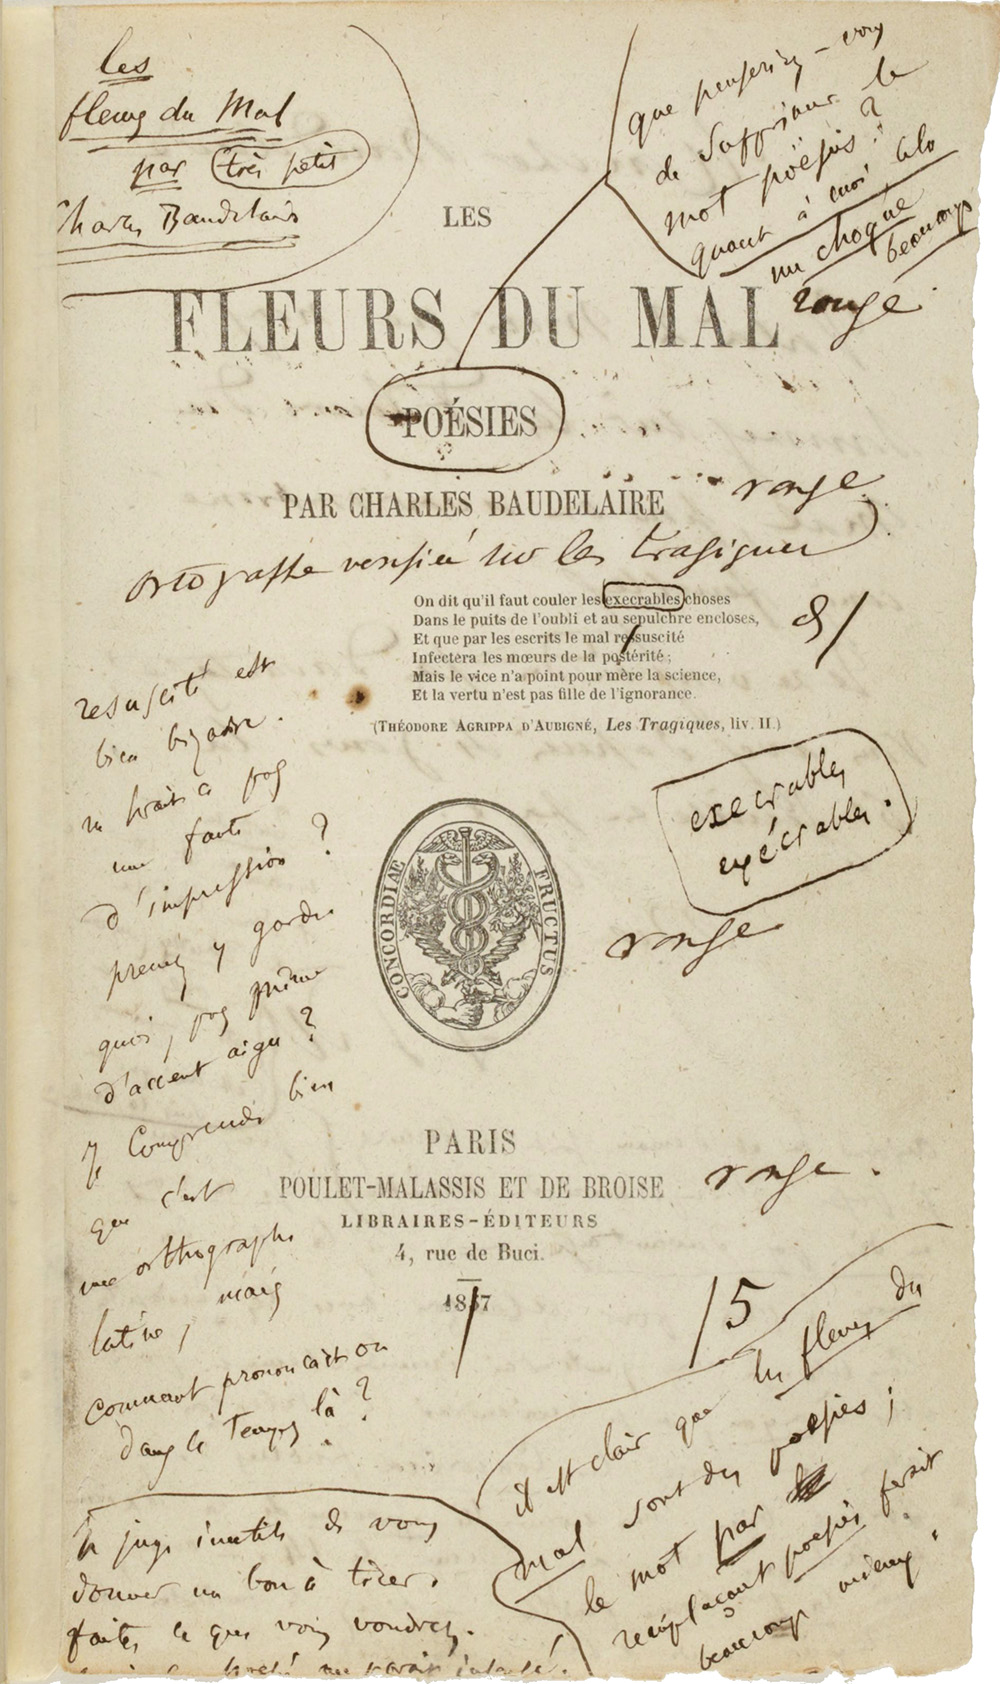 les
fleurs du Mal
par très petit
Charles Baudelaire
que penseriez-vous
de supprimer le
mot poësies ?
quant à moi, cela
me choque
beaucoup
LES
FLEURS DU MAL
rouge.
POÉSIES
PAR CHARLES BAUDELAIRE
rouge
ortografe verifiée sur les tragiques
On dit qu'il faut couler les execrables choses
Dans le puits de l'oubli et au sepulchre encloses,
Et que par les escrits le mal ressuscité
Infectera les mœurs de la postérité ;
Mais le vice n'a point pour mère la science,
Et la vertu n'est pas fille de l'ignorance.
(THÉODORE AGRIPPA D'AUBIGNÉ, Les Tragiques, liv. II.)
resuscité est
bien bizarre.
ne serait-ce pas
une faute
d'impression ?
prenez y garde
quoi, pas même
d'accent aigu ?
Je comprends bien
que c'est
une orthographe
latine, mais
comment prononçait on
dans le temps là ?
execrables
exécrables.
rouge
CONCORDIÆ FRUCTUS
PARIS
POULET-MALASSIS ET DE BROISE
rouge.
LIBRAIRES-ÉDITEURS
4, rue de Buci.
1857
5
il est clair que les fleurs du
mal sont des poësies ;
le mot par
remplaçant poësies ferait
beaucoup mieux.
Je juge inutile de vous
donner un bon à tirer.
faites ce que vous voudrez.